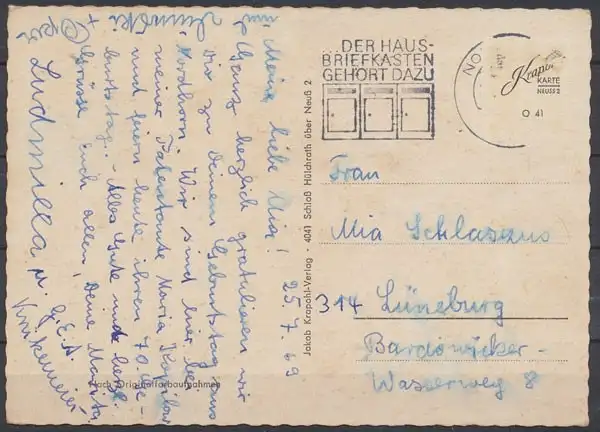 "Meine liebe Mia!
Ganz herzlich gratulieren wir
Dir zu Deinem Geburtstag aus
Nordhorn. Wir sind hier bei
meiner Patentante Maria
und feiern heute ihren 70. Ge-
burtstag. Alles Gute und herzl.
Grüsse Euch allen, Deine Marita
+ Opa
Ludmilla u.
25.7.69
Jakob Krapohl-Verlag · 4041 Schloß Hülchrath über Neuß 2
Nach Originalfarbaufnahmen
...DER HAUS-
BRIEFKASTEN
GEHÖRT DAZU
NO
Krapohl
KARTE
NEUSS 2
O 41
Frau
Mia Schlasaus
314 Lüneburg
Bardowicker-
Wasserweg 8